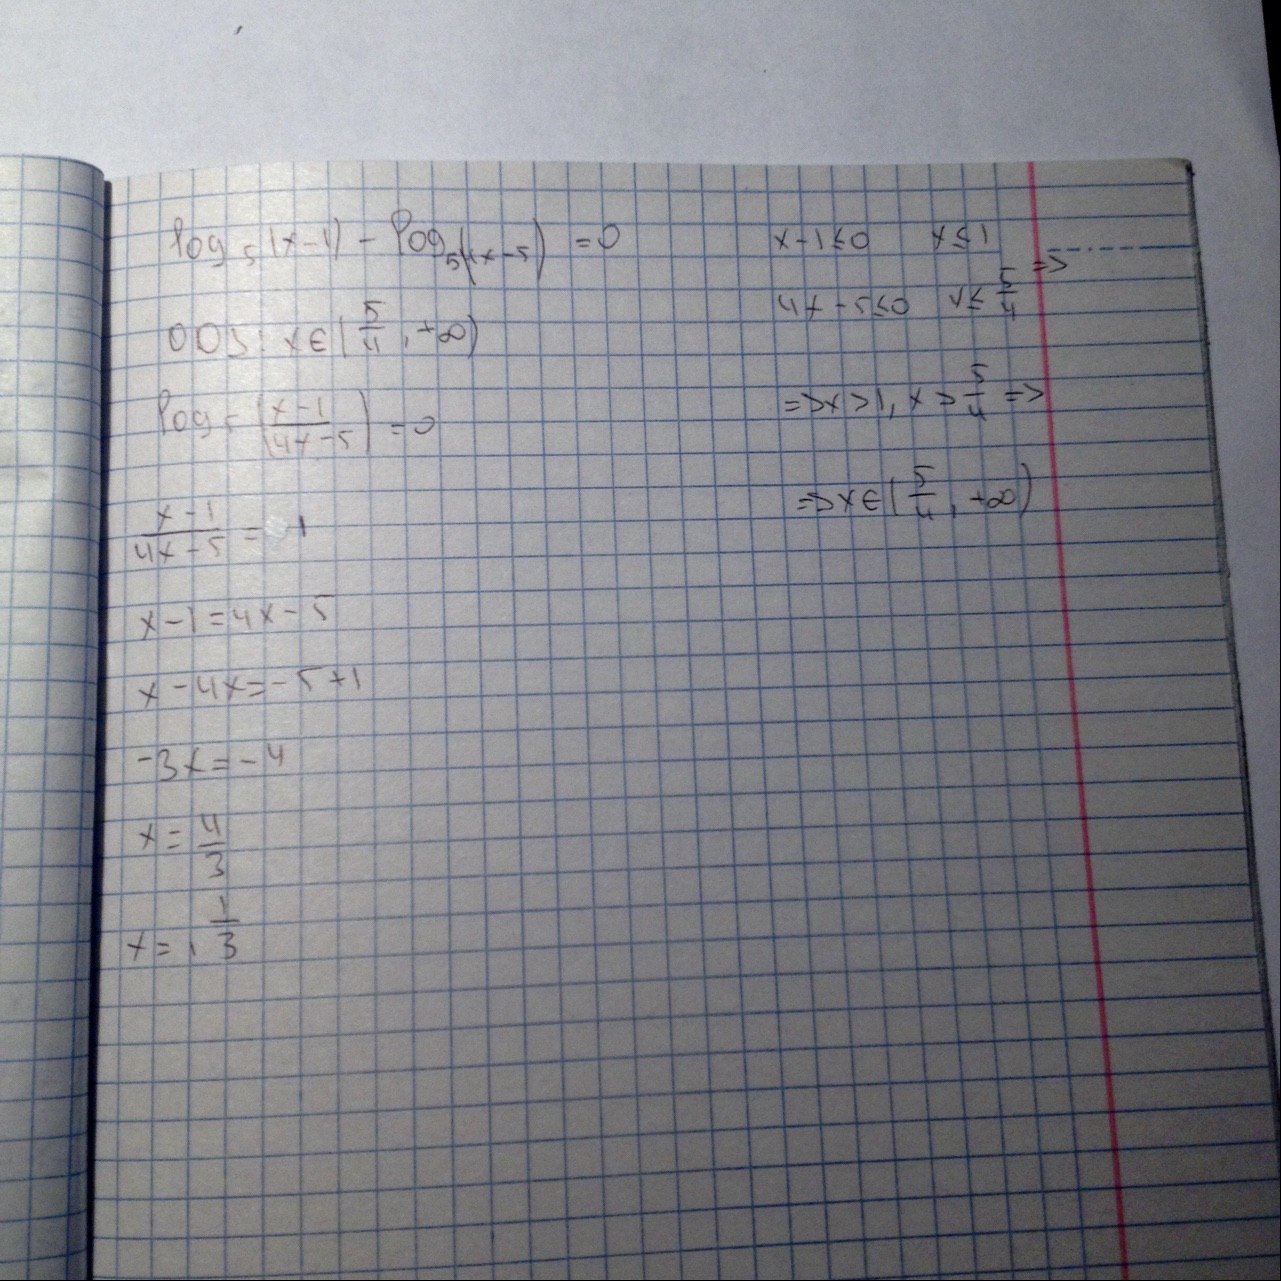 log₅(x-1) - log₅(4x-5) = 0
ОДЗ: x∈(5/4, +∞)
log₅(x-1/4x-5) = 0
x-1/4x-5 = 1
x-1=4x-5
x-4x=-5+1
-3x=-4
x=4/3
x=1 1/3
x-1≤0 x≤1
4x-5≤0 x≤5/4 =>
=>x>1, x>5/4 =>
=>x∈(5/4, +∞)